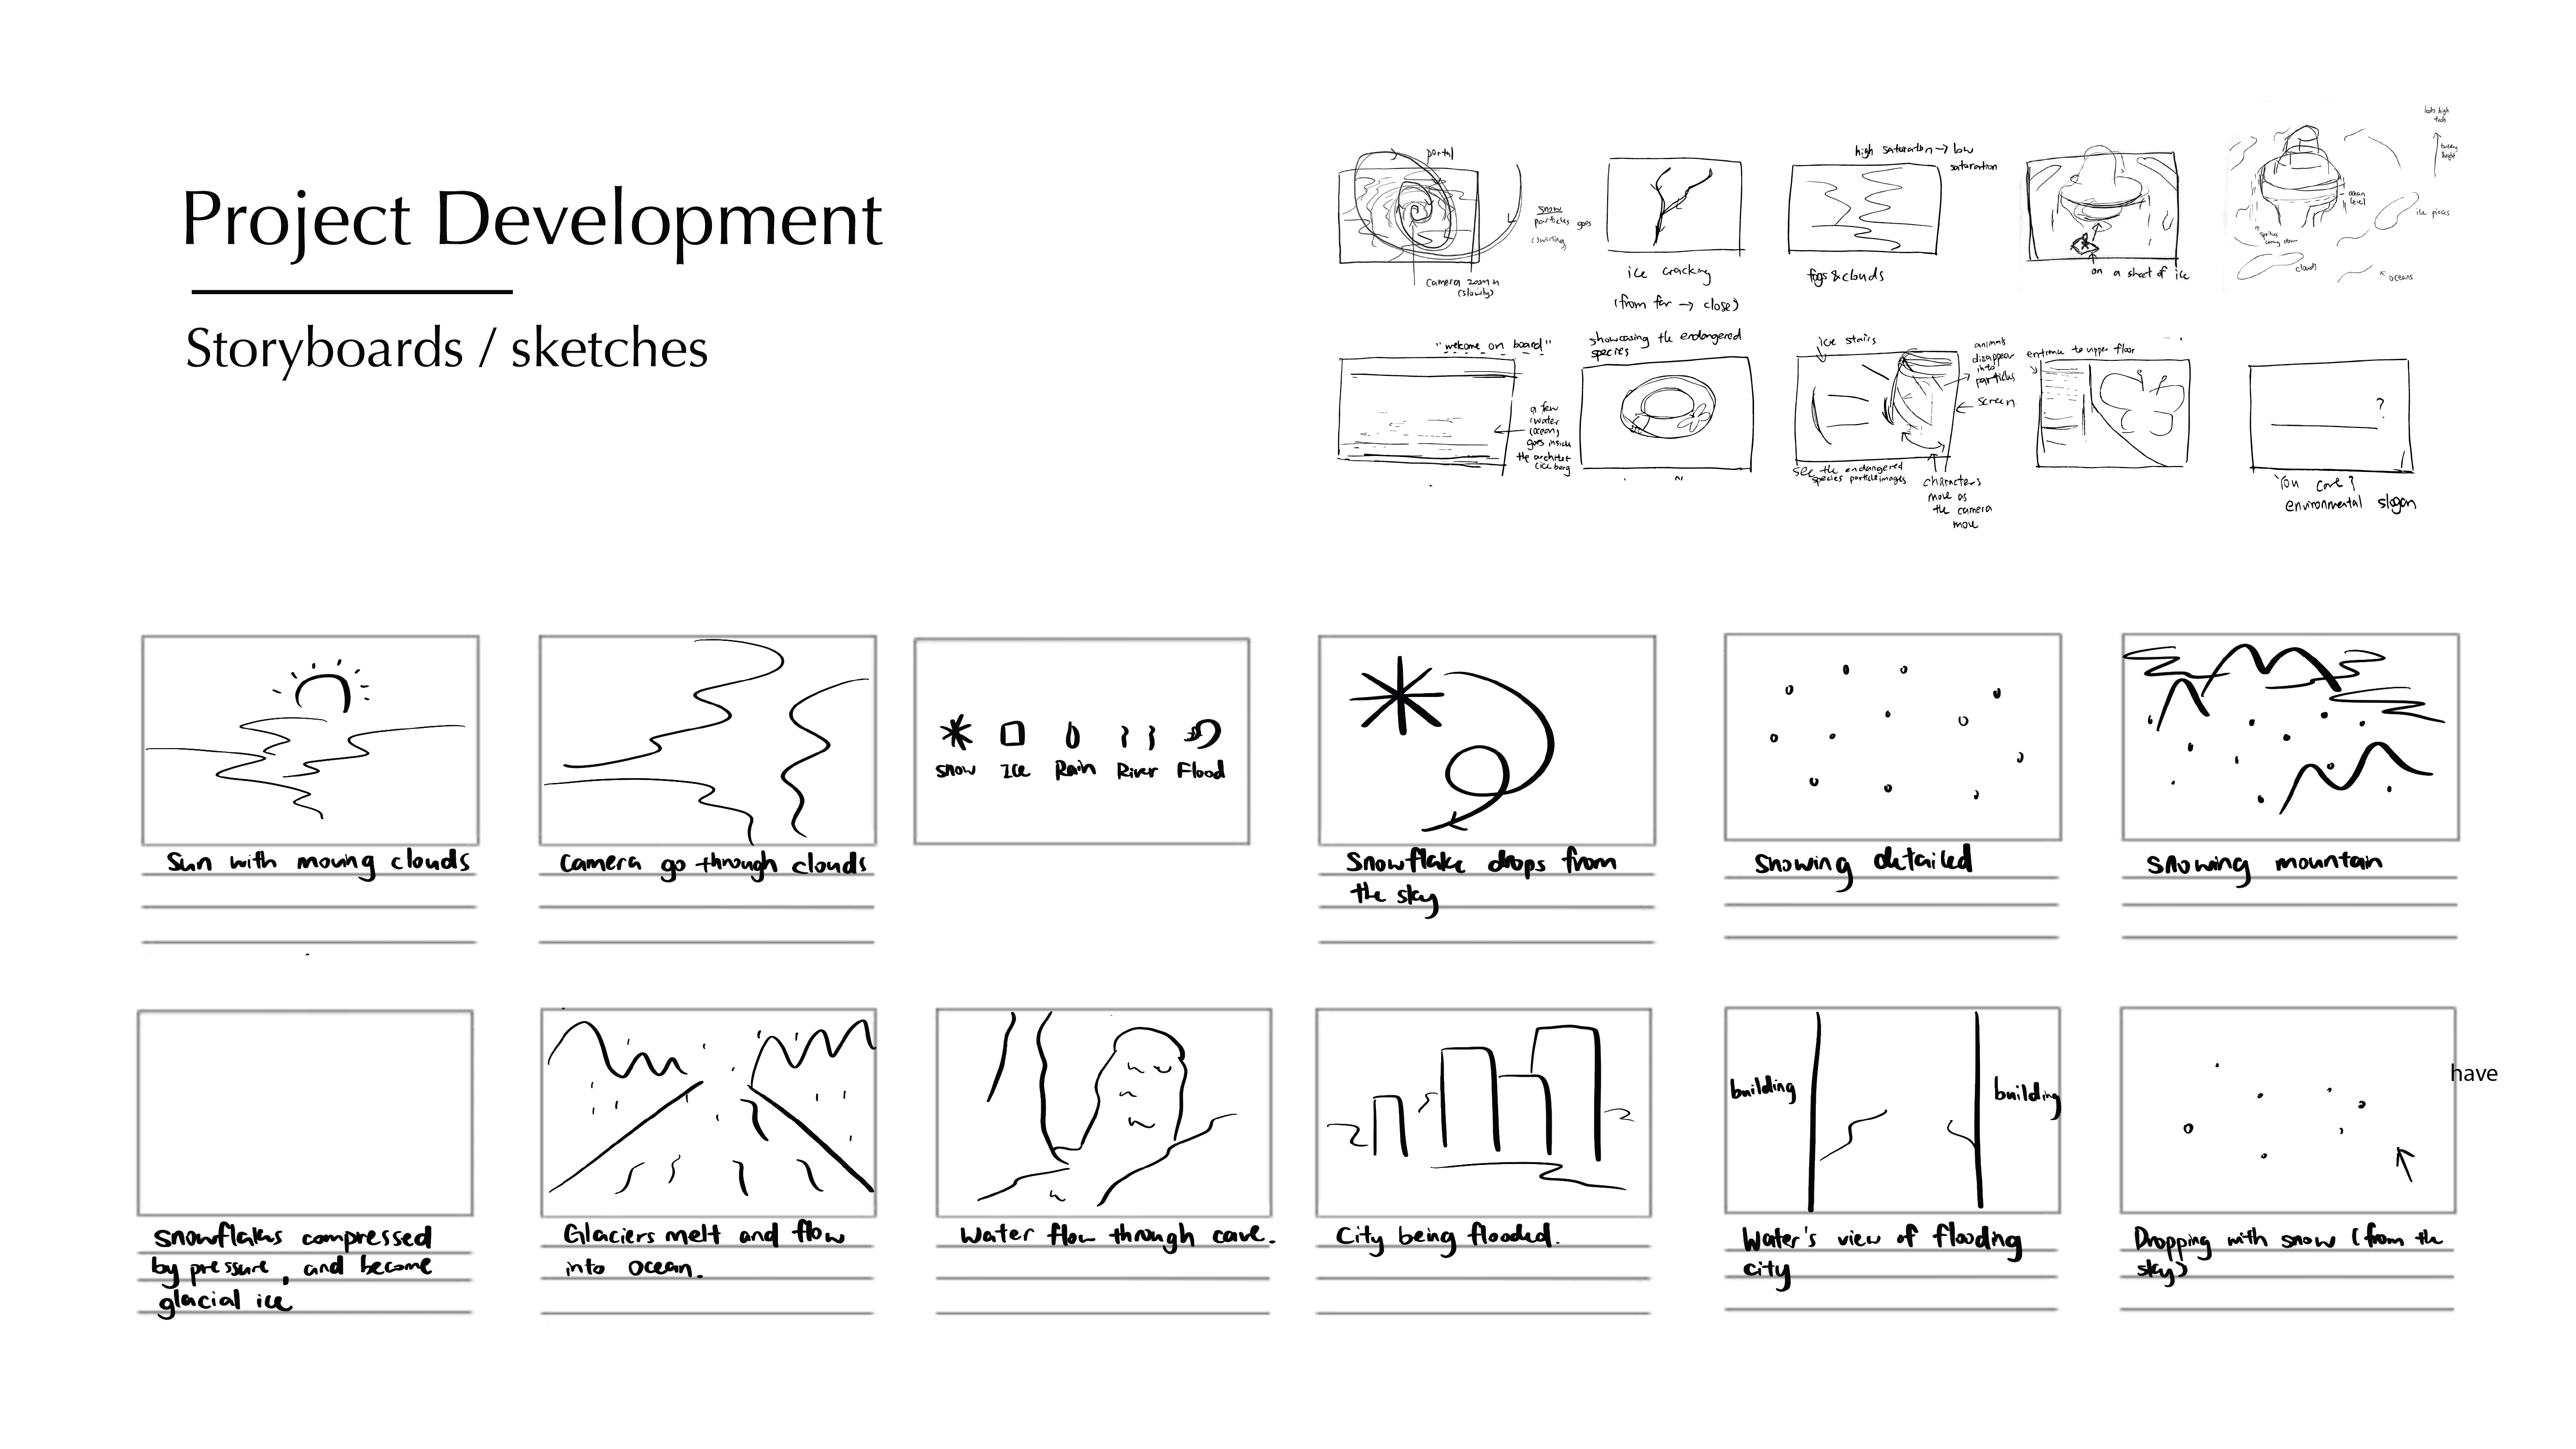 Project Development
Storyboards / sketches
portal
snow
particles goes
swirling
camera zoom in
(slowly)
ice cracking
(from far → close)
high saturation → low
saturation
fogs & clouds
on a sheet of ice
looks high
tech
building
height
ocean
level
ice pieces
coming down
clouds
oceans
"welcome on board"
a few
water
(ocean)
goes inside
the architect
(ice berg
showcasing the endangered
species
ice stairs
animals
disappear
into
particles
screen
see the endangered
species particle images
characters
move as
the camera
move
entrance to upper floor
?
You care?
environmental slogan
Sun with moving clouds
Camera go through clouds
snow Ice Rain River Flood
Snowflake drops from
the sky
Snowing detailed
Snowing mountain
Snowflakes compressed
by pressure, and become
glacial ice
Glaciers melt and flow
into ocean.
Water flow through cave.
City being flooded.
building building
Water's view of flooding
city
have
Dropping with snow (from the
sky)